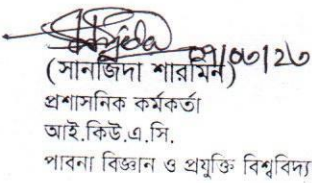 ০৭/০৩/২৩
(সানজিদা শারমিন)
প্রশাসনিক কর্মকর্তা
আই.কিউ.এ.সি.
পাবনা বিজ্ঞান ও প্রযুক্তি বিশ্ববিদ্য